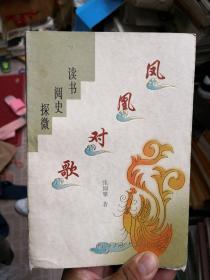 凤凰对歌
读书
阅史
探微
著